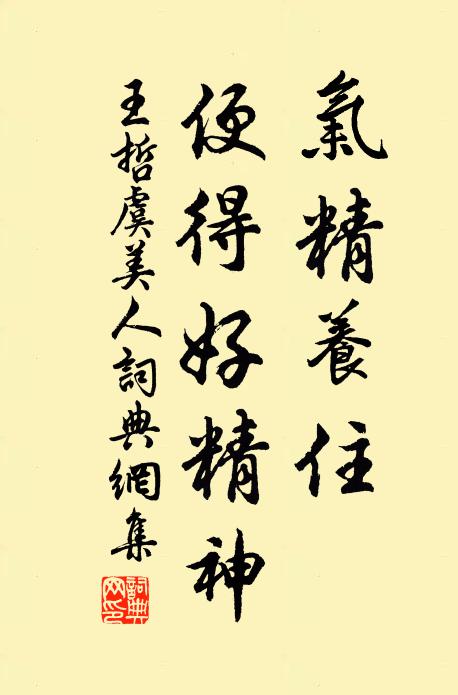 氣精養住
便得好精神
王哲虞美人詞典網集
詞典网印